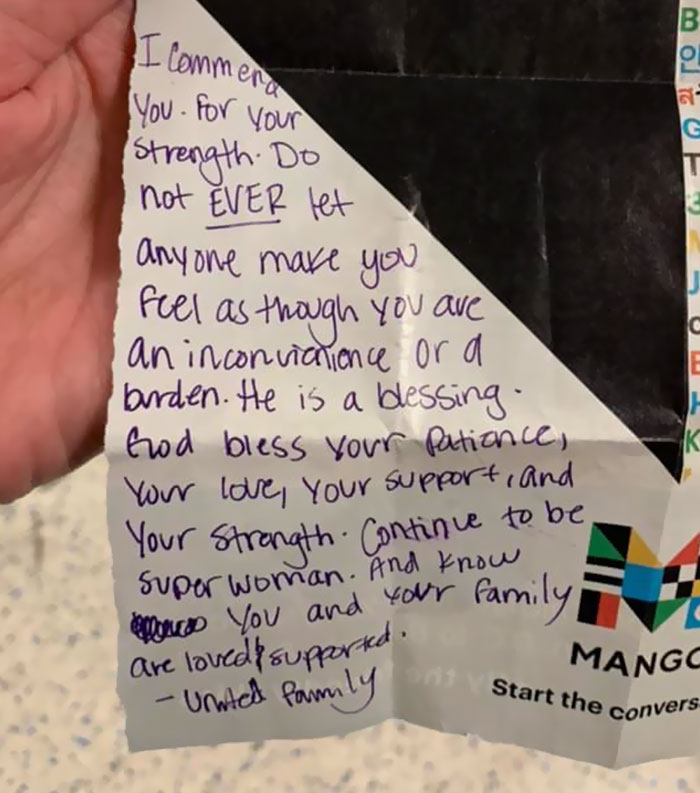 I Commend
You. For Your
Strength. Do
not EVER let
anyone make you
feel as though you are
an inconvienience or a
burden. He is a blessing.
God bless your Patience,
Your love, Your support, and
Your Strength. Continue to be
super woman. And know
You and your family
are loved & supported.
- United family
MANGO
Start the convers
B
G
T
3
M
J
C
E
H
K